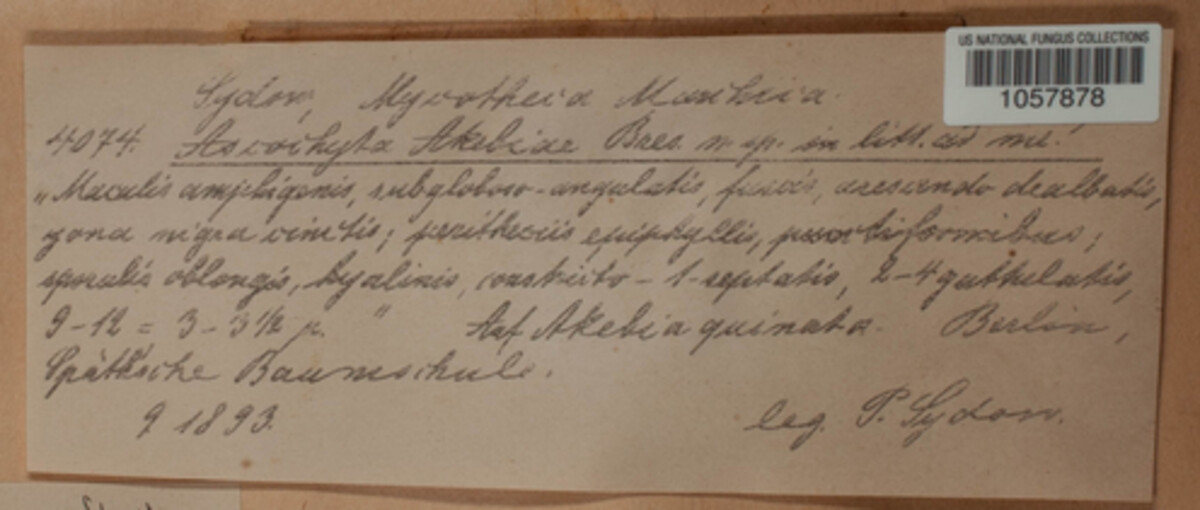 US NATIONAL FUNGUS COLLECTIONS
1057878
Sydow, Mycotheca Marchica.
4074. Ascochyta Akebiae Bres. n. sp. in litt. ad me!
„Maculis amphigenis, subgloboso-angulatis, fuscis, arescendo dealbatis,
zona nigra cinctis; peritheciis epiphyllis, punctiformibus;
sporulis oblongis, hyalinis, constricto-1-septatis, 2-4 guttulatis,
9-12 = 3-3½ µ." Auf Akebia quinata. Berlin,
Späth'sche Baumschule.
9 1893. leg. P. Sydow.